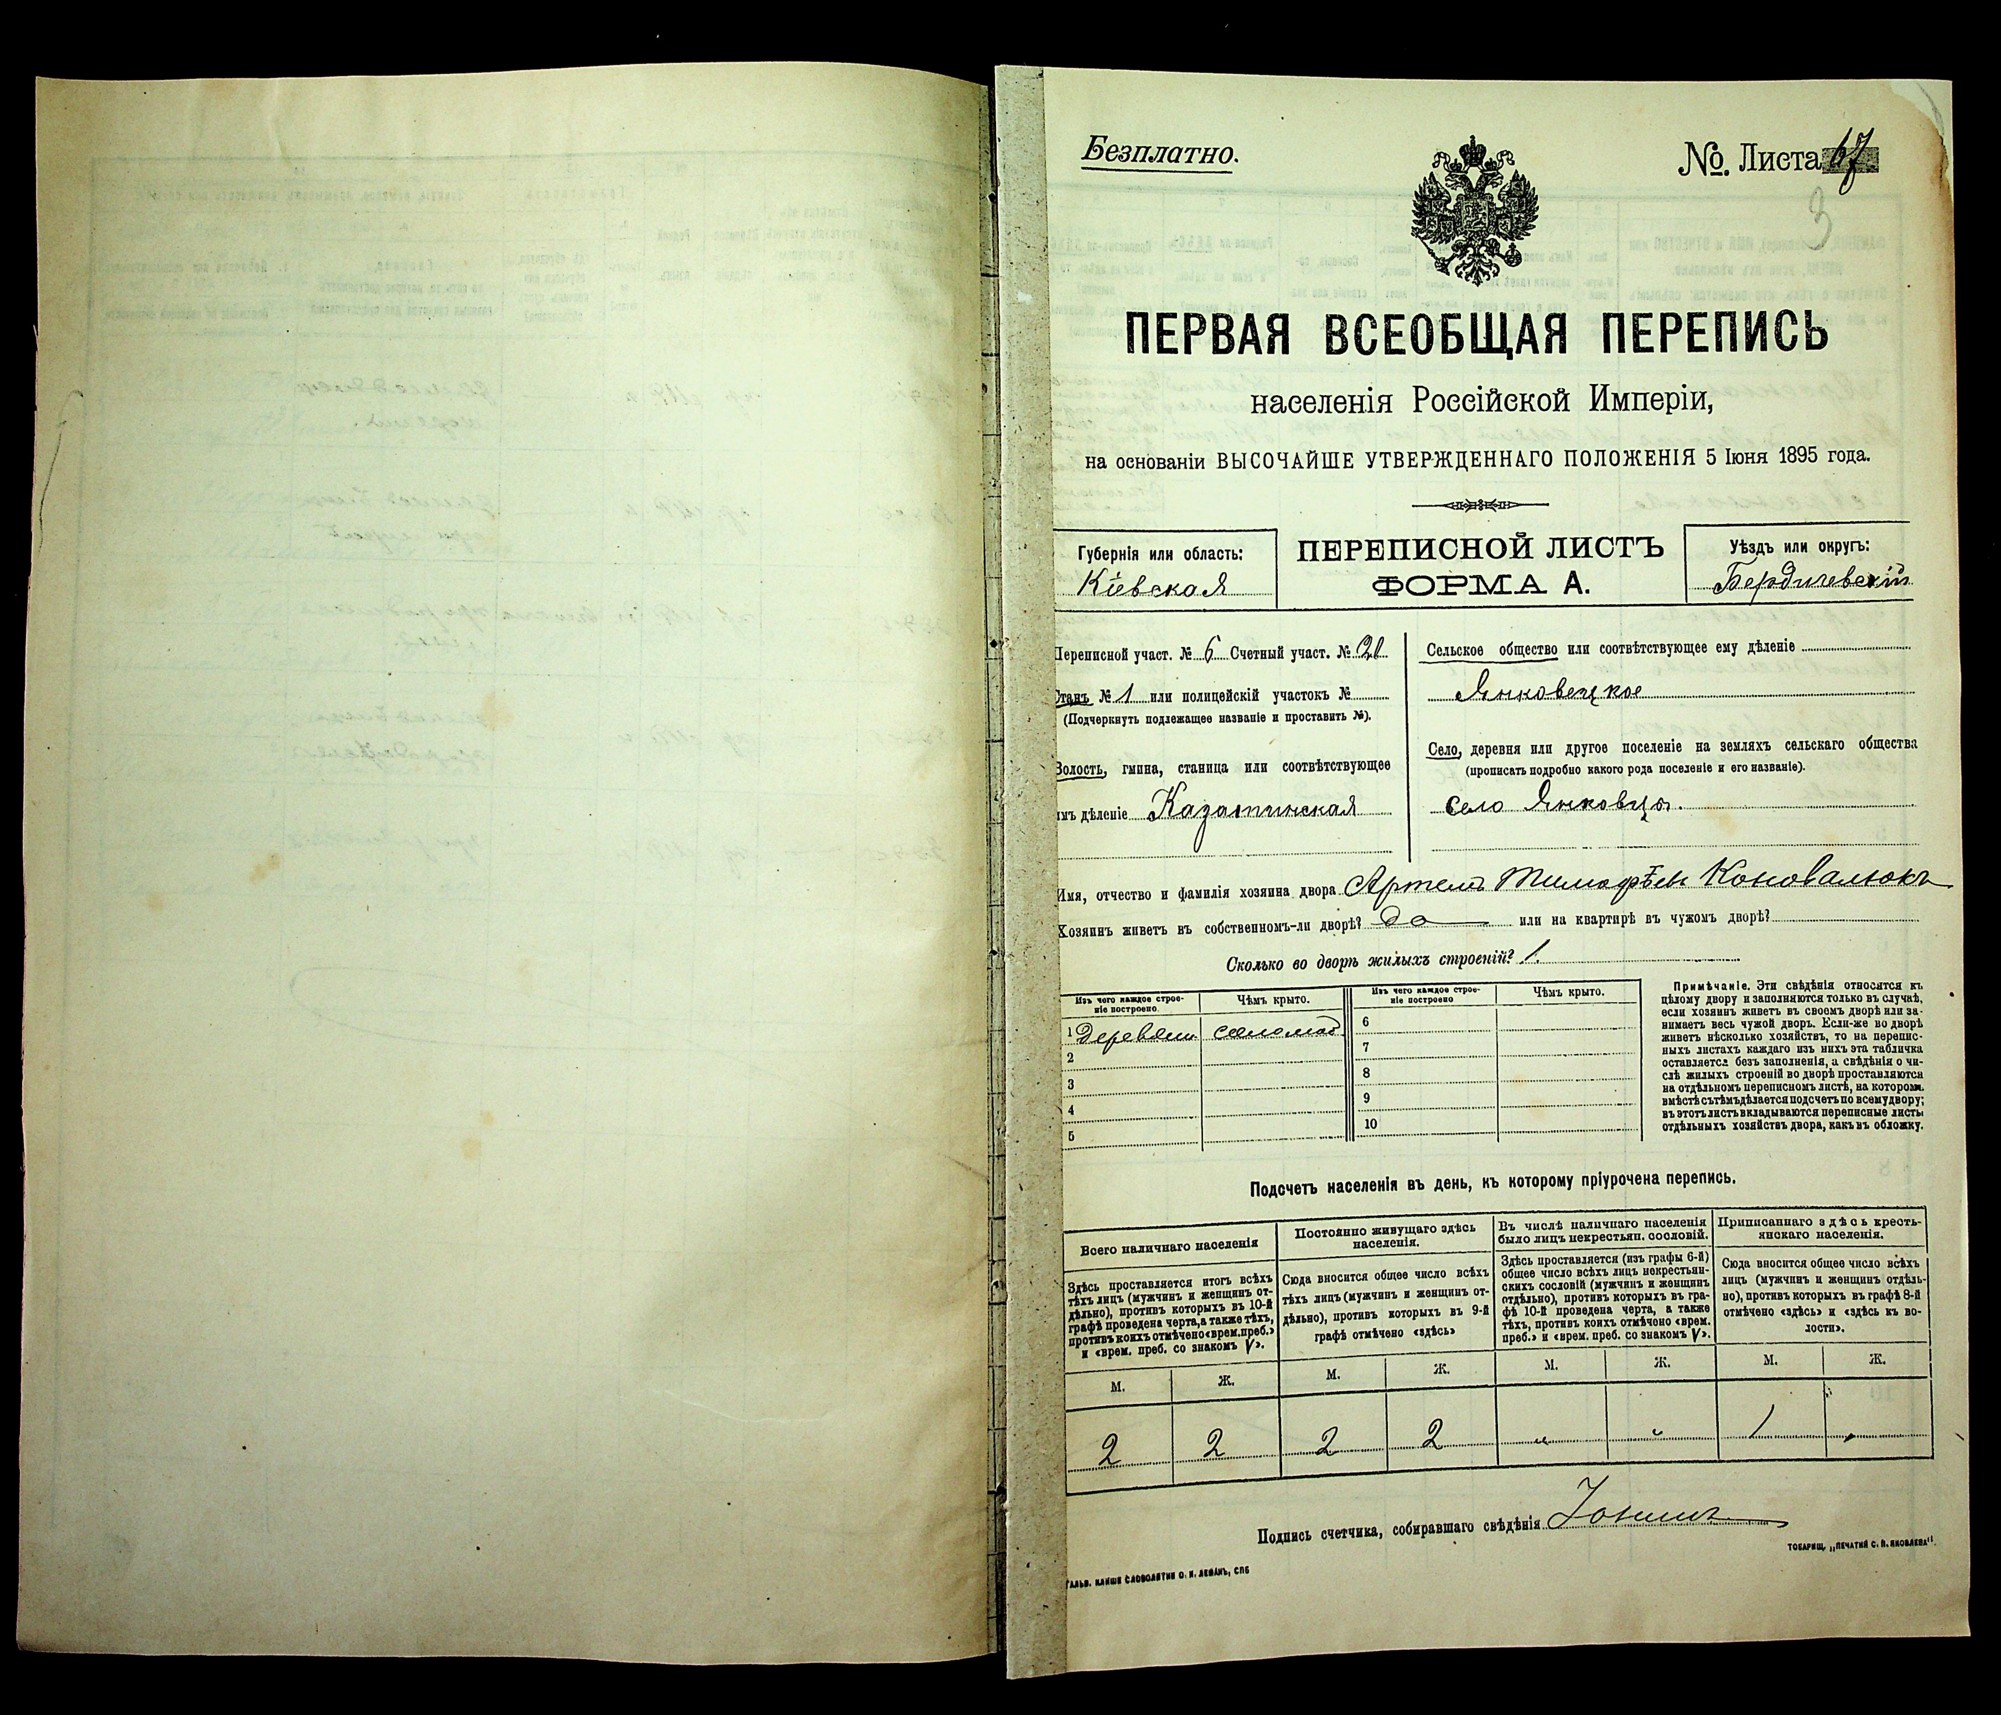 Безплатно.
№. Листа 67
3
ПЕРВАЯ ВСЕОБЩАЯ ПЕРЕПИСЬ
населенія Россійской Имперіи,
на основаніи ВЫСОЧАЙШЕ УТВЕРЖДЕННАГО ПОЛОЖЕНІЯ 5 Іюня 1895 года.
Губернія или область:
Кіевская
ПЕРЕПИСНОЙ ЛИСТЪ
ФОРМА А.
Уѣздъ или округъ:
Бердичевскій
Переписной участ. № 6 Счетный участ. № 21
Станъ № 1 или полицейскій участокъ №
(Подчеркнуть подлежащее названіе и проставить №).
Волость, гмина, станица или соотвѣтствующее
имъ дѣленіе Казатинская
Сельское общество или соотвѣтствующее ему дѣленіе
Янковецкое
Село, деревня или другое поселеніе на земляхъ сельскаго общества
(прописать подробно какого рода поселеніе и его названіе).
село Янковцы.
Имя, отчество и фамилія хозяина двора Артемъ Тимофѣевъ Коновалюкъ
Хозяинъ живетъ въ собственномъ-ли дворѣ? да или на квартирѣ въ чужомъ дворѣ?
Сколько во дворѣ жилыхъ строеній? 1.
Изъ чего каждое строе-
ніе построено.
Чѣмъ крыто.
Изъ чего каждое строе-
ніе построено
Чѣмъ крыто.
1 Деревян. соломой
2
3
4
5
6
7
8
9
10
Примѣчаніе. Эти свѣдѣнія относятся къ
цѣлому двору и заполняются только въ случаѣ,
если хозяинъ живетъ въ своемъ дворѣ или за-
нимаетъ весь чужой дворъ. Если-же во дворѣ
живетъ нѣсколько хозяйствъ, то на перепис-
ныхъ листахъ каждаго изъ нихъ эта табличка
оставляется безъ заполненія, а свѣдѣнія о чи-
слѣ жилыхъ строеній во дворѣ проставляются
на отдѣльномъ переписномъ листѣ, на которомъ
вмѣстѣ съ тѣмъ дѣлается подсчетъ по всему двору;
въ этотъ листъ вкладываются переписные листы
отдѣльныхъ хозяйствъ двора, какъ въ обложку.
Подсчетъ населенія въ день, къ которому пріурочена перепись.
Всего наличнаго населенія
Здѣсь проставляется итогъ всѣхъ
тѣхъ лицъ (мужчинъ и женщинъ от-
дѣльно), противъ которыхъ въ 10-й
графѣ проведена черта, а также тѣхъ,
противъ коихъ отмѣчено «врем. преб.»
и «врем. преб. со знакомъ V».
Постоянно живущаго здѣсь
населенія.
Сюда вносится общее число всѣхъ
тѣхъ лицъ (мужчинъ и женщинъ от-
дѣльно), противъ которыхъ въ 9-й
графѣ отмѣчено «здѣсь»
Въ числѣ наличнаго населенія
было лицъ некрестьян. сословій.
Здѣсь проставляется (изъ графы 6-й)
общее число всѣхъ лицъ некрестьян-
скихъ сословій (мужчинъ и женщинъ
отдѣльно), противъ которыхъ въ гра-
фѣ 10-й проведена черта, а также
тѣхъ, противъ коихъ отмѣчено «врем.
преб.» и «врем. преб. со знакомъ V».
Приписаннаго здѣсь кресть-
янскаго населенія.
Сюда вносится общее число всѣхъ
лицъ (мужчинъ и женщинъ отдѣль-
но), противъ которыхъ въ графѣ 8-й
отмѣчено «здѣсь» и «здѣсь къ во-
лости».
М. Ж. М. Ж. М. Ж. М. Ж.
2 2 2 2 „ „ 1 „
Подпись счетчика, собиравшаго свѣдѣнія
ТОВАРИЩ. „ПЕЧАТНЯ С. П. ЯКОВЛЕВА".
ГАЛЬВ. КЛИШЕ СЛОВОЛИТНИ О. И. ЛЕМАНЪ, СПБ